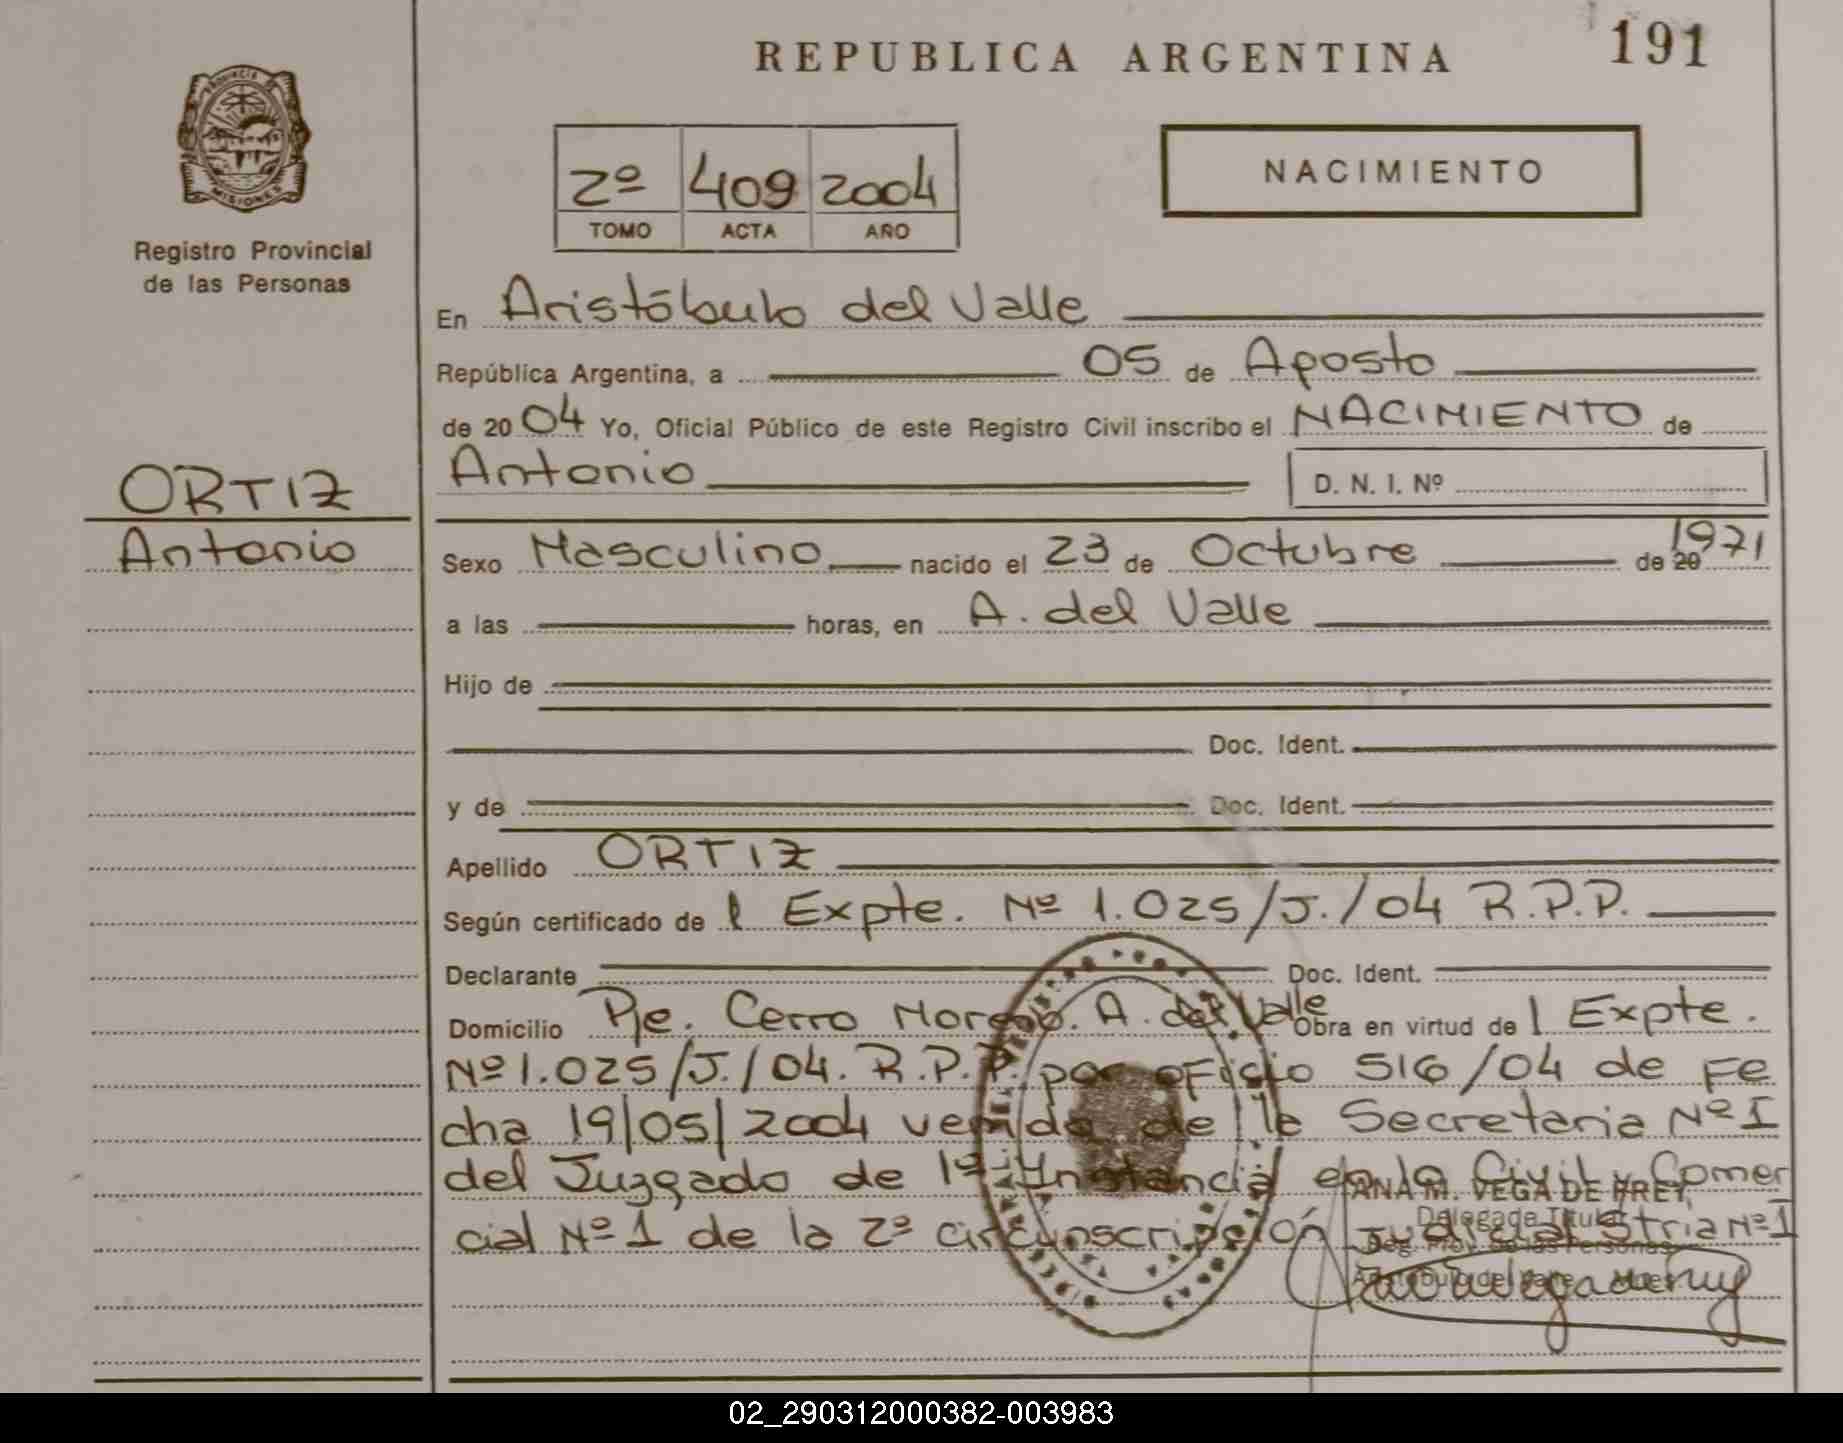 REPUBLICA ARGENTINA
191
PROVINCIA
MISIONES
Registro Provincial
de las Personas
2º 409 2004
TOMO ACTA AÑO
NACIMIENTO
En Aristóbulo del Valle
República Argentina, a 05 de Agosto
de 20 04 Yo, Oficial Público de este Registro Civil inscribo el NACIMIENTO de
Antonio D. N. I. Nº
ORTIZ
Antonio
Sexo Masculino nacido el 23 de Octubre de 20 1971
a las horas, en A. del Valle
Hijo de
Doc. Ident.
y de Doc. Ident.
Apellido ORTIZ
Según certificado de l Expte. Nº 1.025/J./04 R.P.P.
Declarante Doc. Ident.
Domicilio Pje. Cerro Moreno. A. del Valle Obra en virtud de l Expte.
Nº 1.025/J./04. R.P.P. por oficio 516/04 de Fe
cha 19/05/2004 venida de la Secretaria Nº I
del Juzgado de 1ª Instancia en lo Civil y Comer
cial Nº 1 de la 2ª circunscripción Judicial Stria Nº I
ANA M. VEGA DE FREY
Delegada Titular
Deg. Prov. de las Personas
Aristóbulo del Valle
02_290312000382-003983